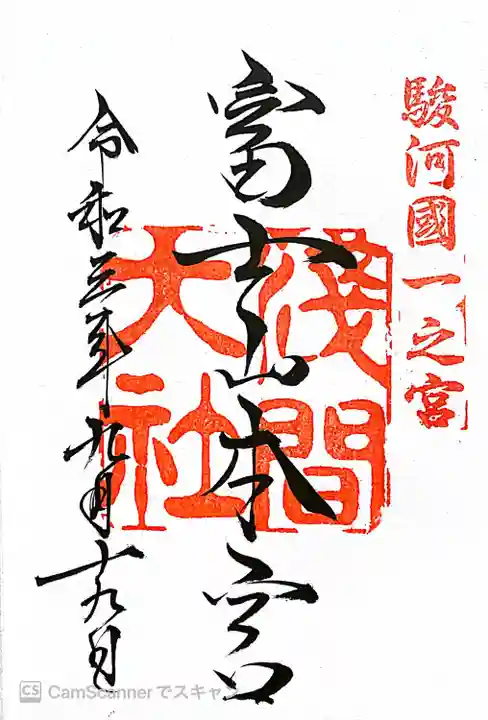 駿河國一之宮
富士山本宮
淺間大社
令和三年九月十九日
CS CamScannerでスキャン